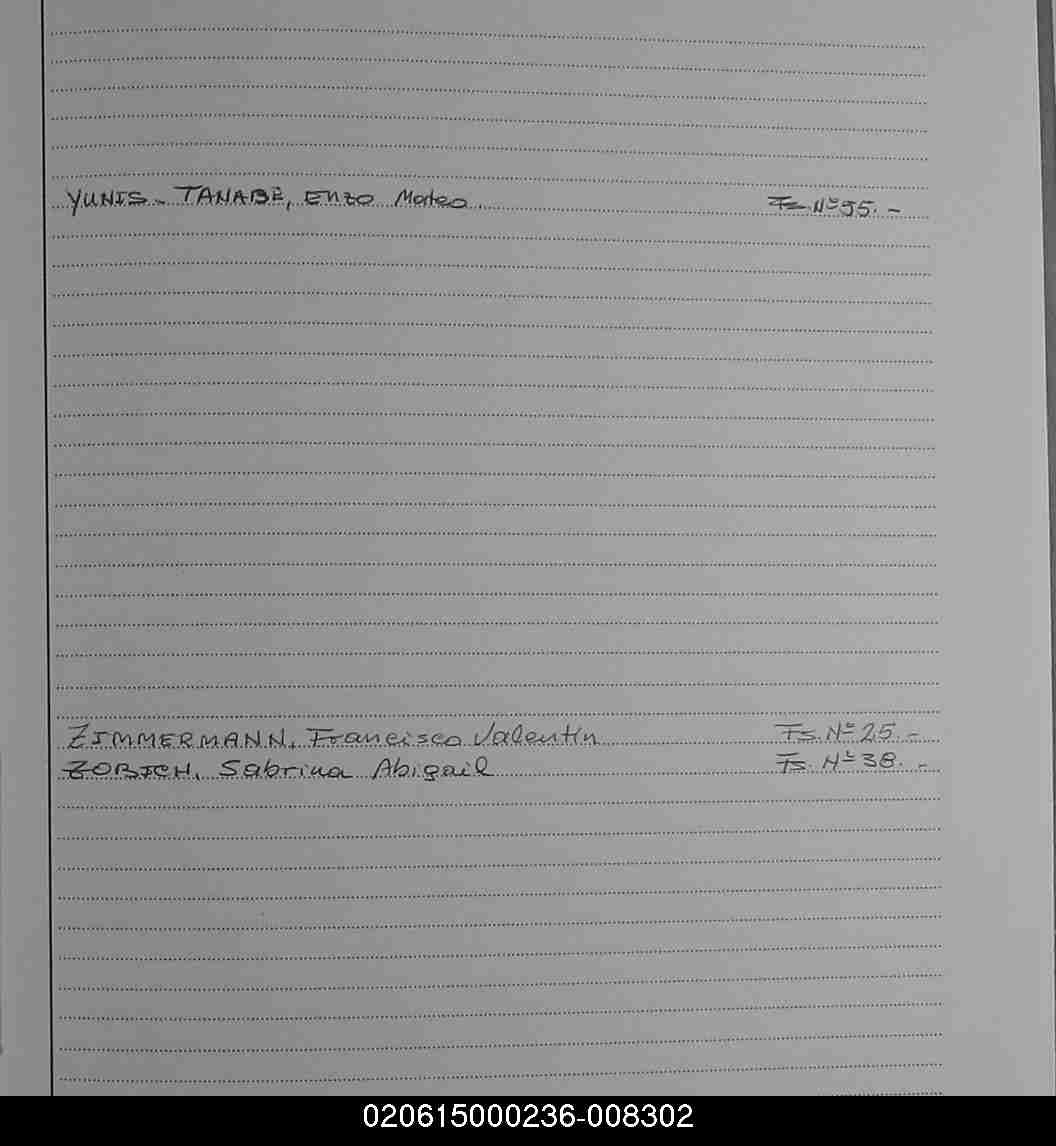 YUNIS - TANABE, Enzo Mateo. Fs. Nº 55. -
ZIMMERMANN, Francisco Valentín Fs. Nº 25. -
ZORICH, Sabrina Abigail Fs. Nº 38. -
020615000236-008302